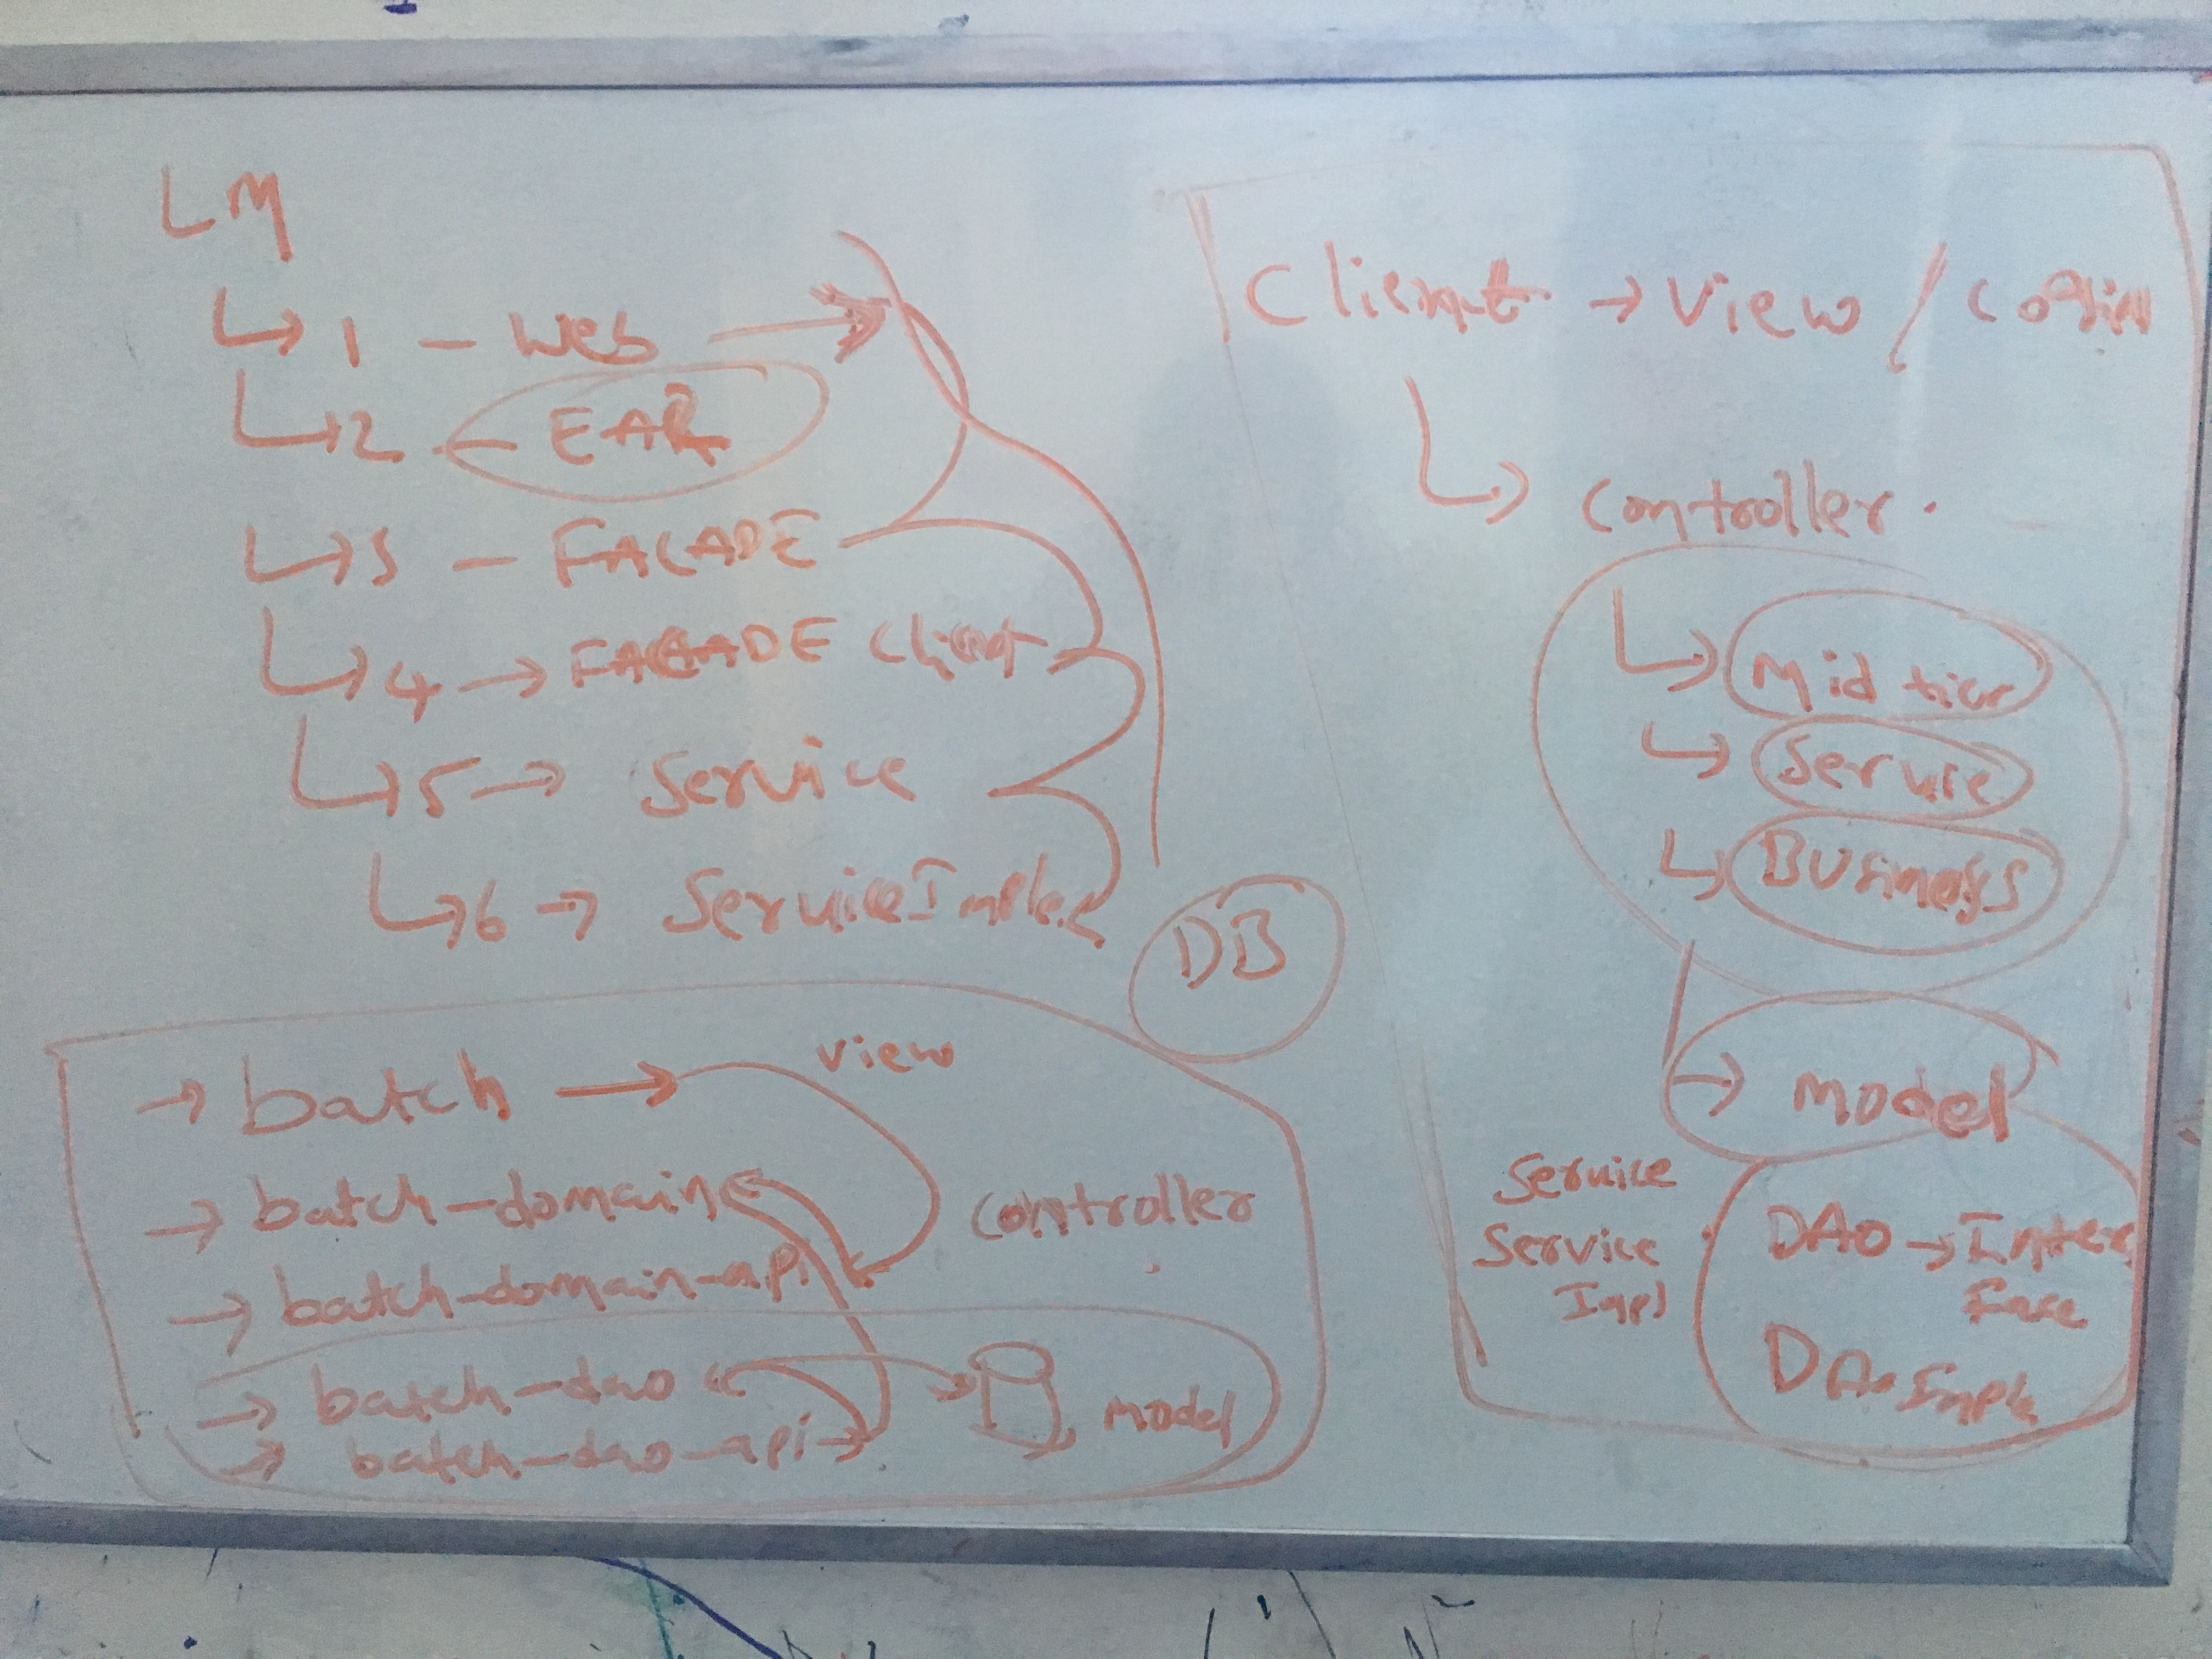 LM
↳ 1 - Web →
↳ 2 - EAR
↳ 3 - FACADE
↳ 4 → FACADE Client
↳ 5 → Service
↳ 6 → Service
DB
→ batch → view
→ batch-domain
controller
→ batch-domain-api
→ batch-dao
model
→ batch-dao-api
Client → View /
↳ controller.
↳ Mid tier
↳ Servie
↳ Business
→ model
Service
Service
Impl
DAO → Inter
Face
DAO Imple